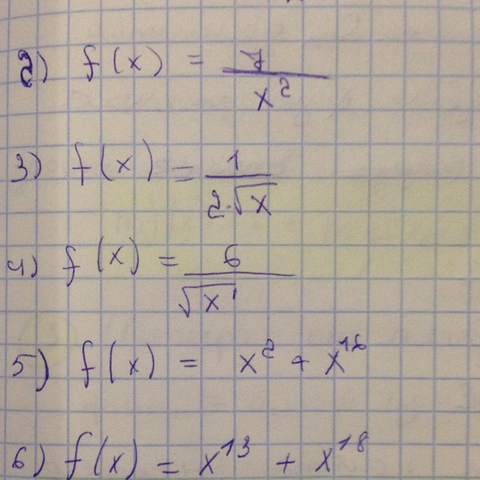 2) f(x) = 7/x²
3) f(x) = 1/(2·√x)
4) f(x) = 6/√x
5) f(x) = x² + x¹⁶
6) f(x) = x¹³ + x¹⁸